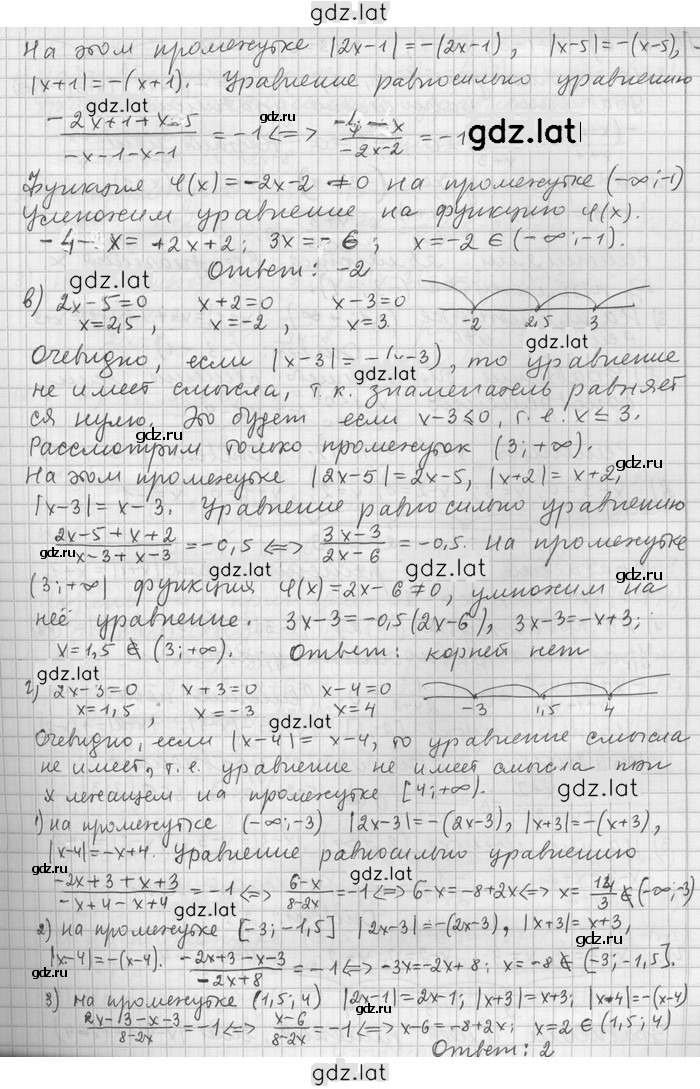 gdz.lat
На этом промежутке |2x-1|=-(2x-1), |x-5|=-(x-5),
|x+1|=-(x+1). Уравнение равносильно уравнению
gdz.lat
(-2x+1+x-5)/(-x-1-x-1) = -1 <=> (-4-x)/(-2x-2) = -1 gdz.lat
Функция φ(x)=-2x-2≠0 на промежутке (-∞;-1)
Умножим уравнение на функцию φ(x).
-4-x=+2x+2; 3x=-6; x=-2∈(-∞;-1).
gdz.lat Ответ: -2
в) 2x-5=0 x+2=0 x-3=0
x=2,5, x=-2, x=3. -2 2,5 3
gdz.lat
Очевидно, если |x-3|=-(x-3), то уравнение
gdz.lat
не имеет смысла, т.к. знаменатель равняет
ся нулю. Это будет если x-3≤0, т.е. x≤3.
gdz.ru
Рассмотрим только промежуток (3;+∞).
gdz.ru
На этом промежутке |2x-5|=2x-5, |x+2|=x+2,
|x-3|=x-3. Уравнение равносильно уравнению
(2x-5+x+2)/(x-3+x-3)=-0,5 <=> (3x-3)/(2x-6) = -0,5. На промежутке
gdz.ru
gdz.lat
(3;+∞) функция φ(x)=2x-6≠0, умножим на
gdz.ru
неё уравнение. 3x-3=-0,5(2x-6), 3x-3=-x+3;
x=1,5∉(3;+∞). Ответ: корней нет
gdz.lat
г) 2x-3=0 x+3=0 x-4=0
x=1,5, x=-3 x=4 -3 1,5 4
gdz.lat
Очевидно, если |x-4|=x-4, то уравнение смысла
не имеет, т.е. уравнение не имеет смысла при
x лежащем на промежутке [4;+∞). gdz.lat
1) на промежутке (-∞;-3) |2x-3|=-(2x-3), |x+3|=-(x+3),
gdz.ru
|x-4|=-x+4. Уравнение равносильно уравнению
gdz.lat
(-2x+3+x+3)/(-x+4-x+4)=-1<=>(6-x)/(8-2x)=-1<=>6-x=-8+2x<=>x=14/3∉(-∞;-3)
gdz.lat
2) на промежутке [-3;-1,5] |2x-3|=-(2x-3), |x+3|=x+3,
gdz.ru
|x-4|=-(x-4). (-2x+3-x-3)/(-2x+8)=-1<=>-3x=-2x+8; x=-8∉[-3;-1,5].
gdz.ru
3) на промежутке (1,5;4) |2x-1|=2x-1; |x+3|=x+3; |x-4|=-(x-4)
(2x-13-x-3)/(8-2x)=-1<=>(x-6)/(8-2x)=-1<=>x-6=-8+2x; x=2∈(1,5;4)
gdz.ru
Ответ: 2
gdz.lat